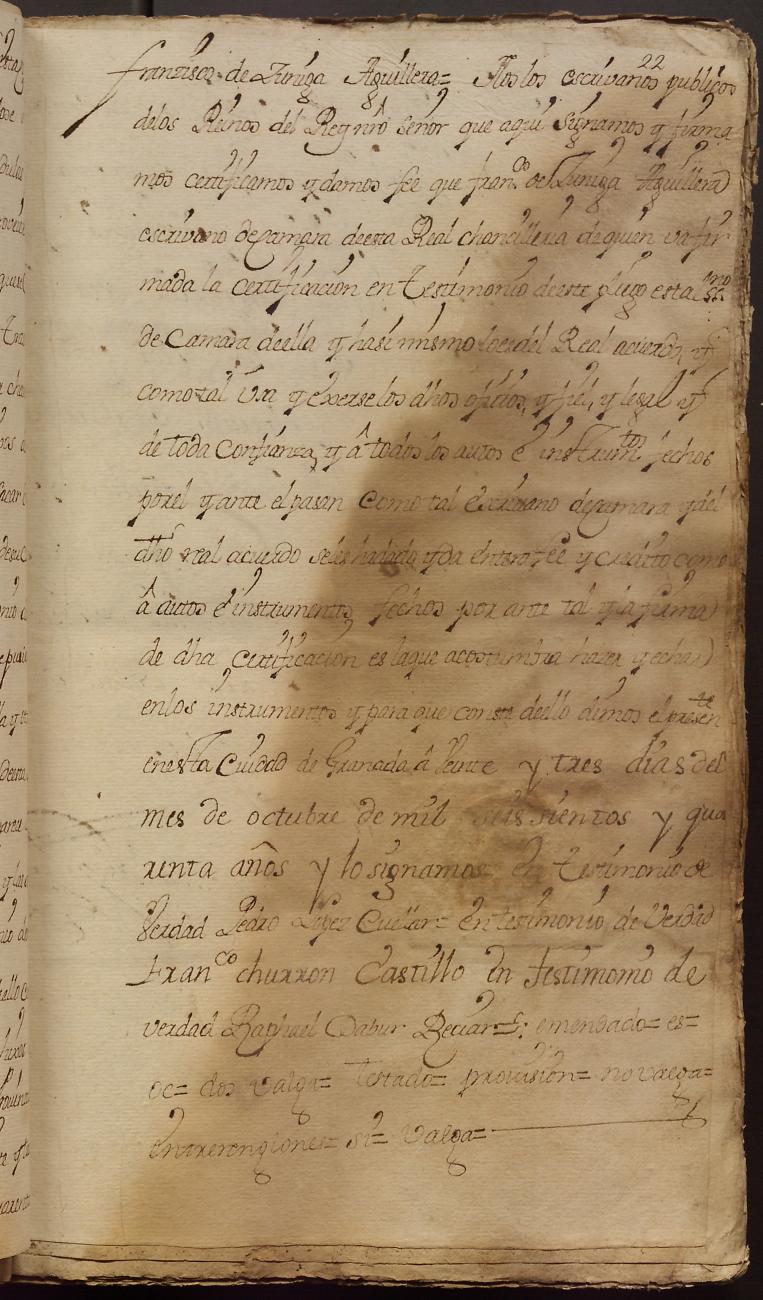 22
Françisco de Zuniga Aguillera= Nos los escrivanos publicos
delos Reinos del Rey nrô señor que aqui signamos y firma
mos certificamos y damos fee que fran.co de Zuniga Aguillera
escrivano de camara deesta Real chancilleria de quien va fir
mada la certificacion en testimonio deeste pliego esta
de Camara deella y hasi mismo loes del Real acuerdo, y
como tal Usa y exerse los dhos ofiçios, y fiel, y legal y
de toda confianza, y â todos los autos e instrumtos fechos
por el y ante el pasan como tal escrivano de camara y del
dho real acuerdo seles ha dado y da entera fee y credito como
â autos e instrumentos fechos por ante tal y la firma
de dha certificacion es la que acostumbra hazer y echar
enlos instrumentos y para que conste deello dimos el presente
enesta Ciudad de Granada â Veinte y tres dias del
mes de octubre de mil seis sientos y qua
renta años y lo signamos en testimonio de
Verdad Pedro Lopez Cuellar= en testimonio de Verdad
Franco churron Castillo en testimonio de
verdad Raphael emendado= es=
oc= dos valga= testado= provision= no valga=
entrerengiones= si= valga=